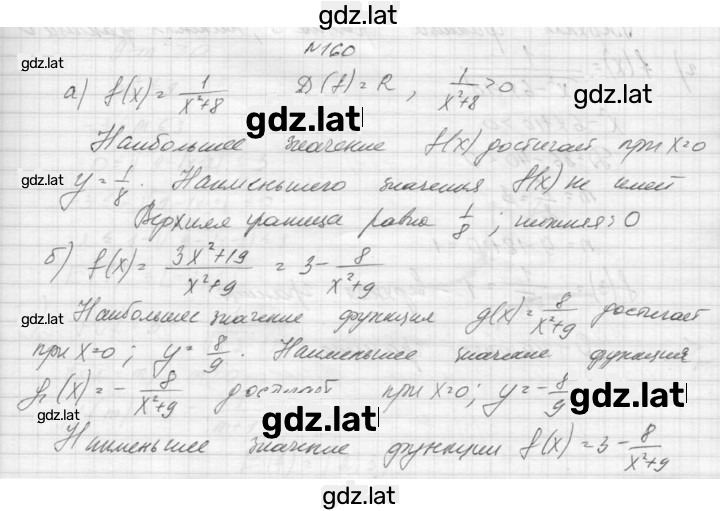 gdz.lat
N160
gdz.lat
а) f(x) = 1/(x²+8)   D(f) = R, 1/(x²+8) > 0
gdz.lat
gdz.lat
Наибольшее значение f(x) достигает при x=0
gdz.lat
y = 1/8. Наименьшего значения f(x) не имеет
Верхняя граница равна 1/8; нижняя > 0
б) f(x) = (3x²+19)/(x²+9) = 3 - 8/(x²+9)
gdz.lat
Наибольшее значение функция g(x) = 8/(x²+9) достигает
при x=0; y = 8/9. Наименьшее значение функция
(x) = - 8/(x²+9) достигает при x=0; y = - 8/9
gdz.lat
gdz.lat
gdz.lat
Наименьшее значение функции f(x) = 3 - 8/(x²+9)
gdz.lat